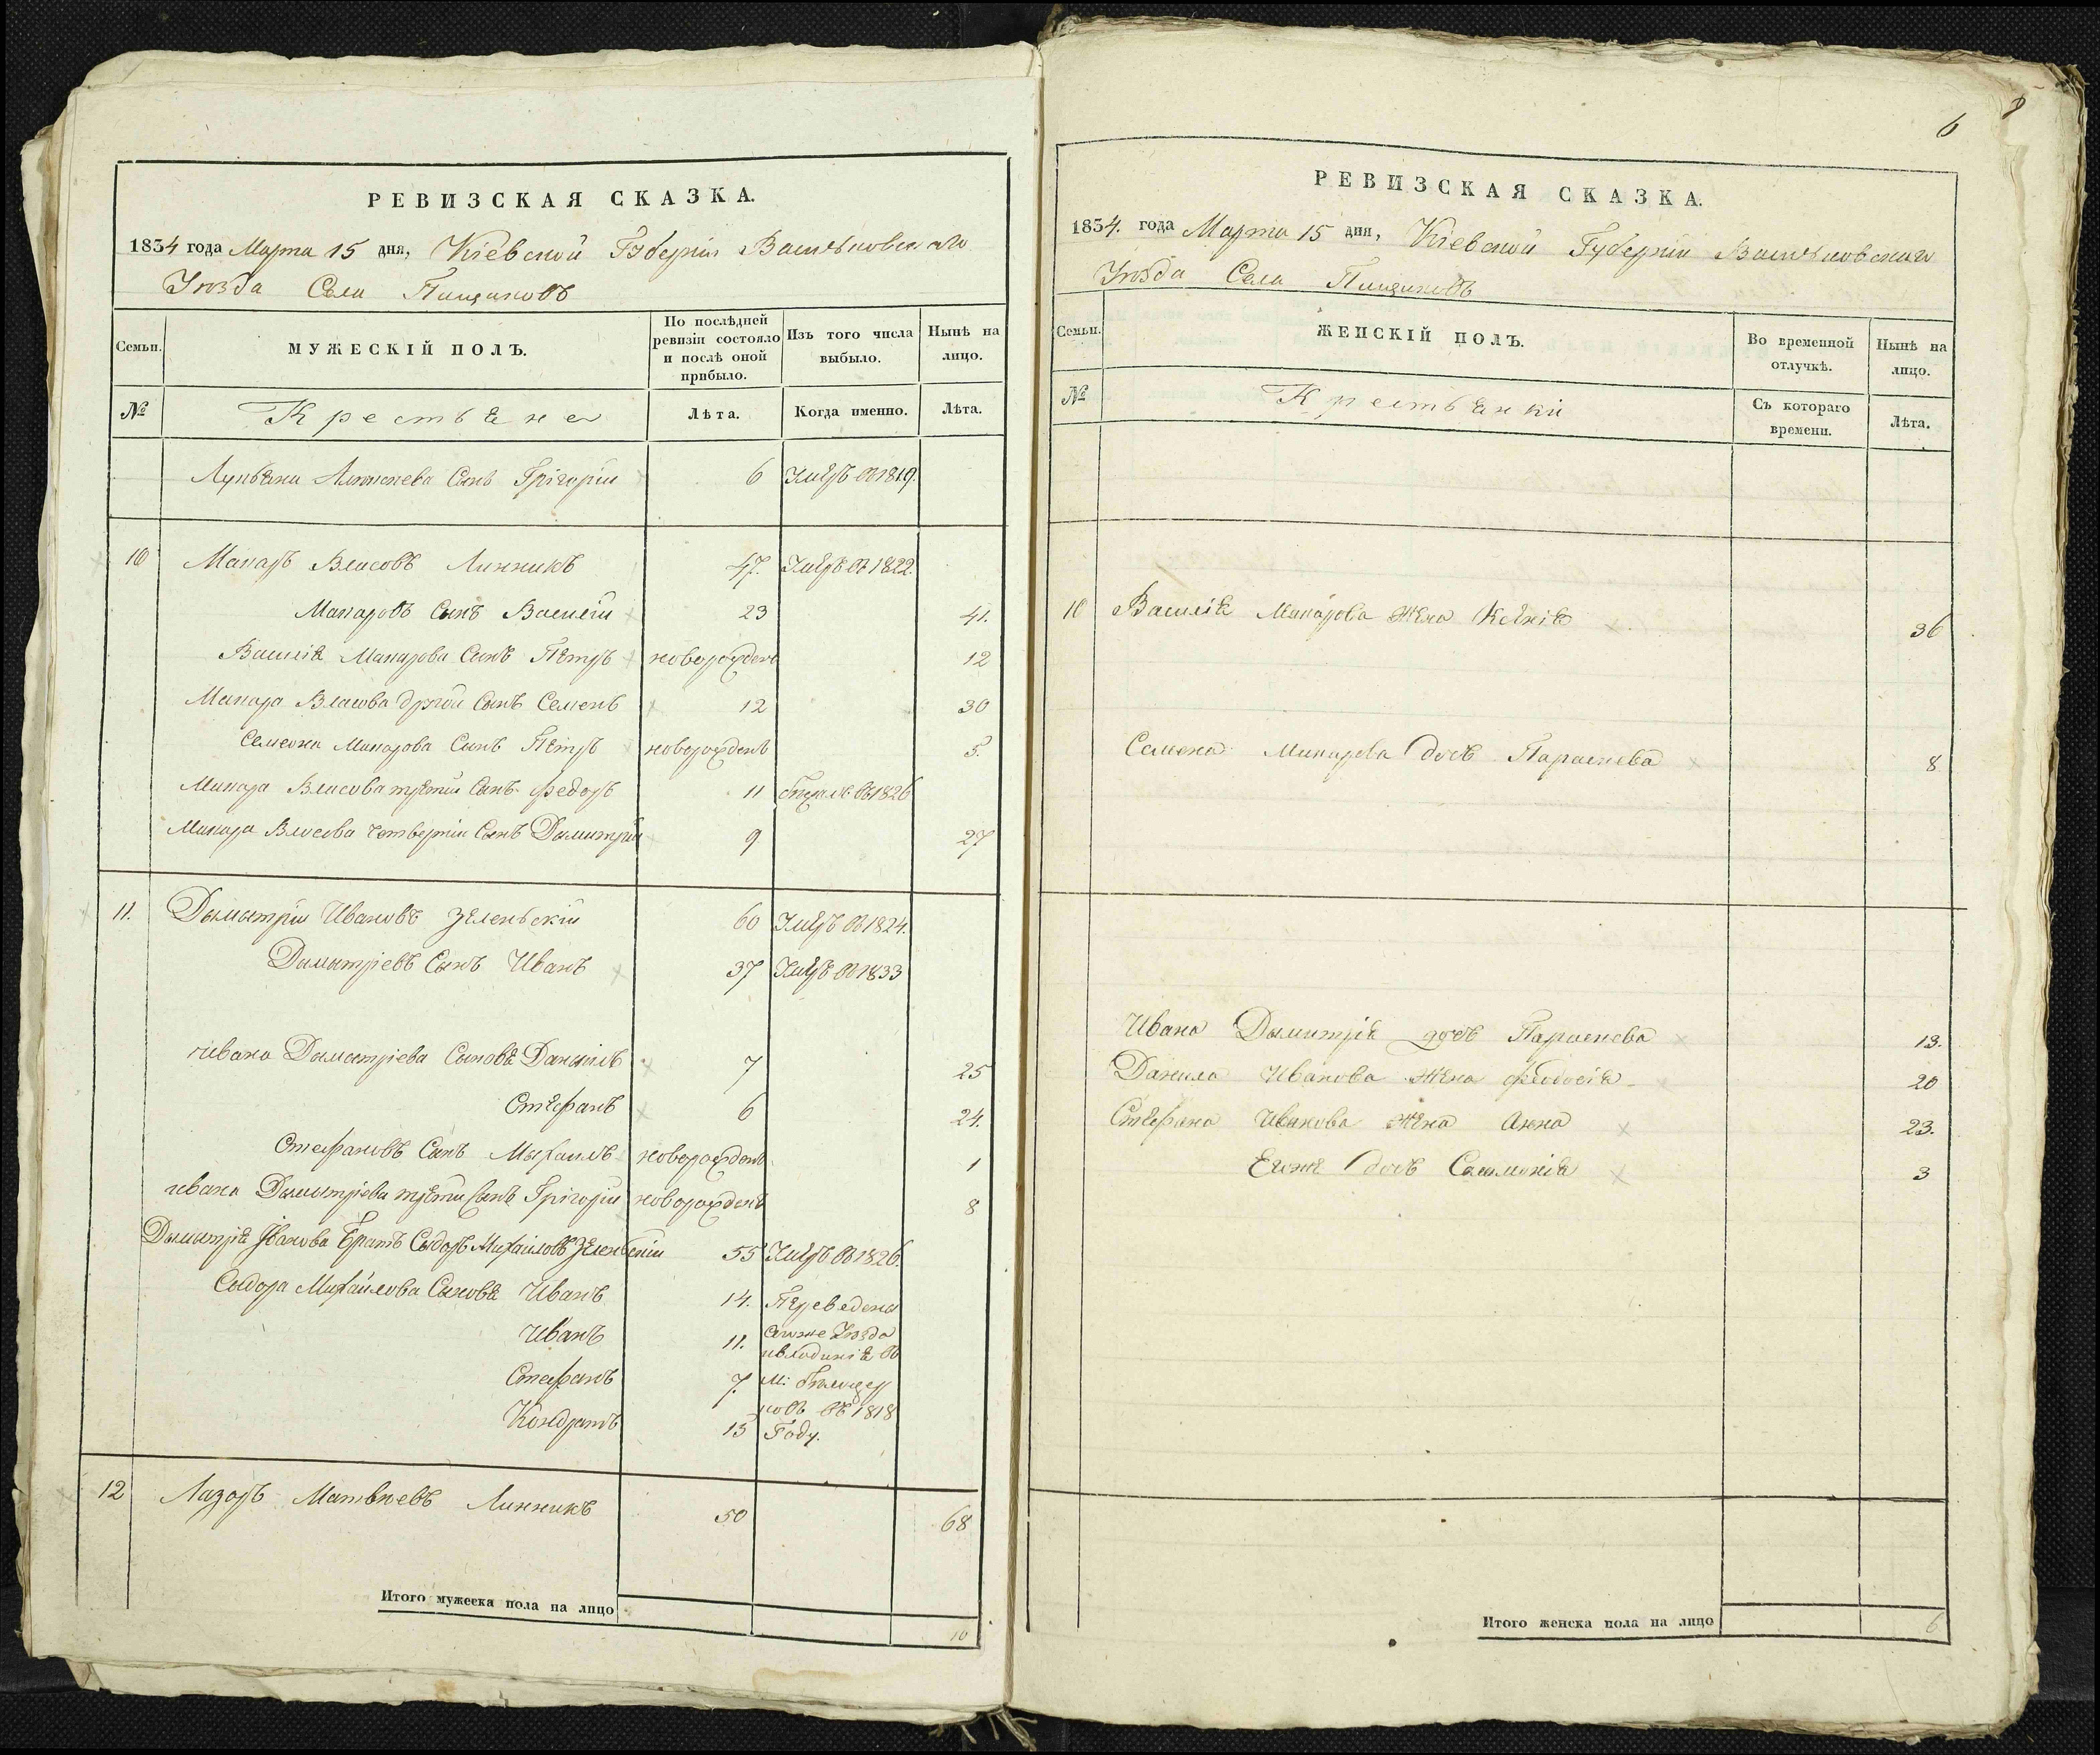 РЕВИЗСКАЯ СКАЗКА.
1834 года Марта 15 дня, Кіевской Губерніи Васильковскаго
Уѣзда Села Пищиковъ
Семьи.
МУЖЕСКІЙ ПОЛЪ.
По послѣдней ревизіи состояло и послѣ оной прибыло.
Изъ того числа выбыло.
Нынѣ на лицо.
№
Крестьяне
Лѣта.
Когда именно.
Лѣта.
Лукьяна Сынъ Григорій 6 Умеръ въ 1819.
10 Макаръ Власовъ Линникъ 47. Умеръ въ 1822.
Макаровъ Сынъ Василій 23 41.
Василія Макарова Сынъ Петръ новорожденъ 12
Макара Власова другой Сынъ Семенъ 12 30
Семена Макарова Сынъ Петръ новорожденъ 5.
Макара Власова третій Сынъ Федоръ 11 въ 1826
Макара Власова четвертій Сынъ Дымитрій 9 27
11. Дымытрій Ивановъ Зеленьскій 60 Умеръ въ 1824.
Дымытріевъ Сынъ Иванъ 37 Умеръ въ 1833
Ивана Дымытріева Сыновя Данылъ 7 25
Стефанъ 6 24.
Стефановъ Сынъ Мыхаилъ новорожденъ 1
Ивана Дымытріева третій Сынъ Григорій новорожденъ 8
Дымытрія Іванова Братъ Сыдоръ Михайловъ Зеленьскій 55 Умеръ въ 1826.
Сыдора Михайлова Сыновя Иванъ 14. Переведены
Иванъ 11. Уѣзда
въ
Стефанъ 7. м:
въ 1818
Кондратъ 13 Году.
12 Лазоръ Матвѣевъ Линникъ 50 68
Итого мужеска пола на лицо
10
6
РЕВИЗСКАЯ СКАЗКА.
1834. года Марта 15 дня, Кіевской Губерніи Васильковскаго
Уѣзда Села Пищиковъ
Семьи.
ЖЕНСКІЙ ПОЛЪ.
Во временной отлучкѣ.
Нынѣ на лицо.
№
Крестьянки
Съ котораго времени.
Лѣта.
10 Василія Макарова жена 36
Семена Макарова дочь Параскева 8
Ивана Дымитрія дочь Параскева 13.
Данила Иванова жена Феодосія 20
Стефана Иванова жена Анна 23.
Егоже дочь Саломонія 3
Итого женска пола на лицо
6